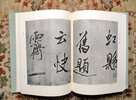 虹縣
舊題
云快
霽一